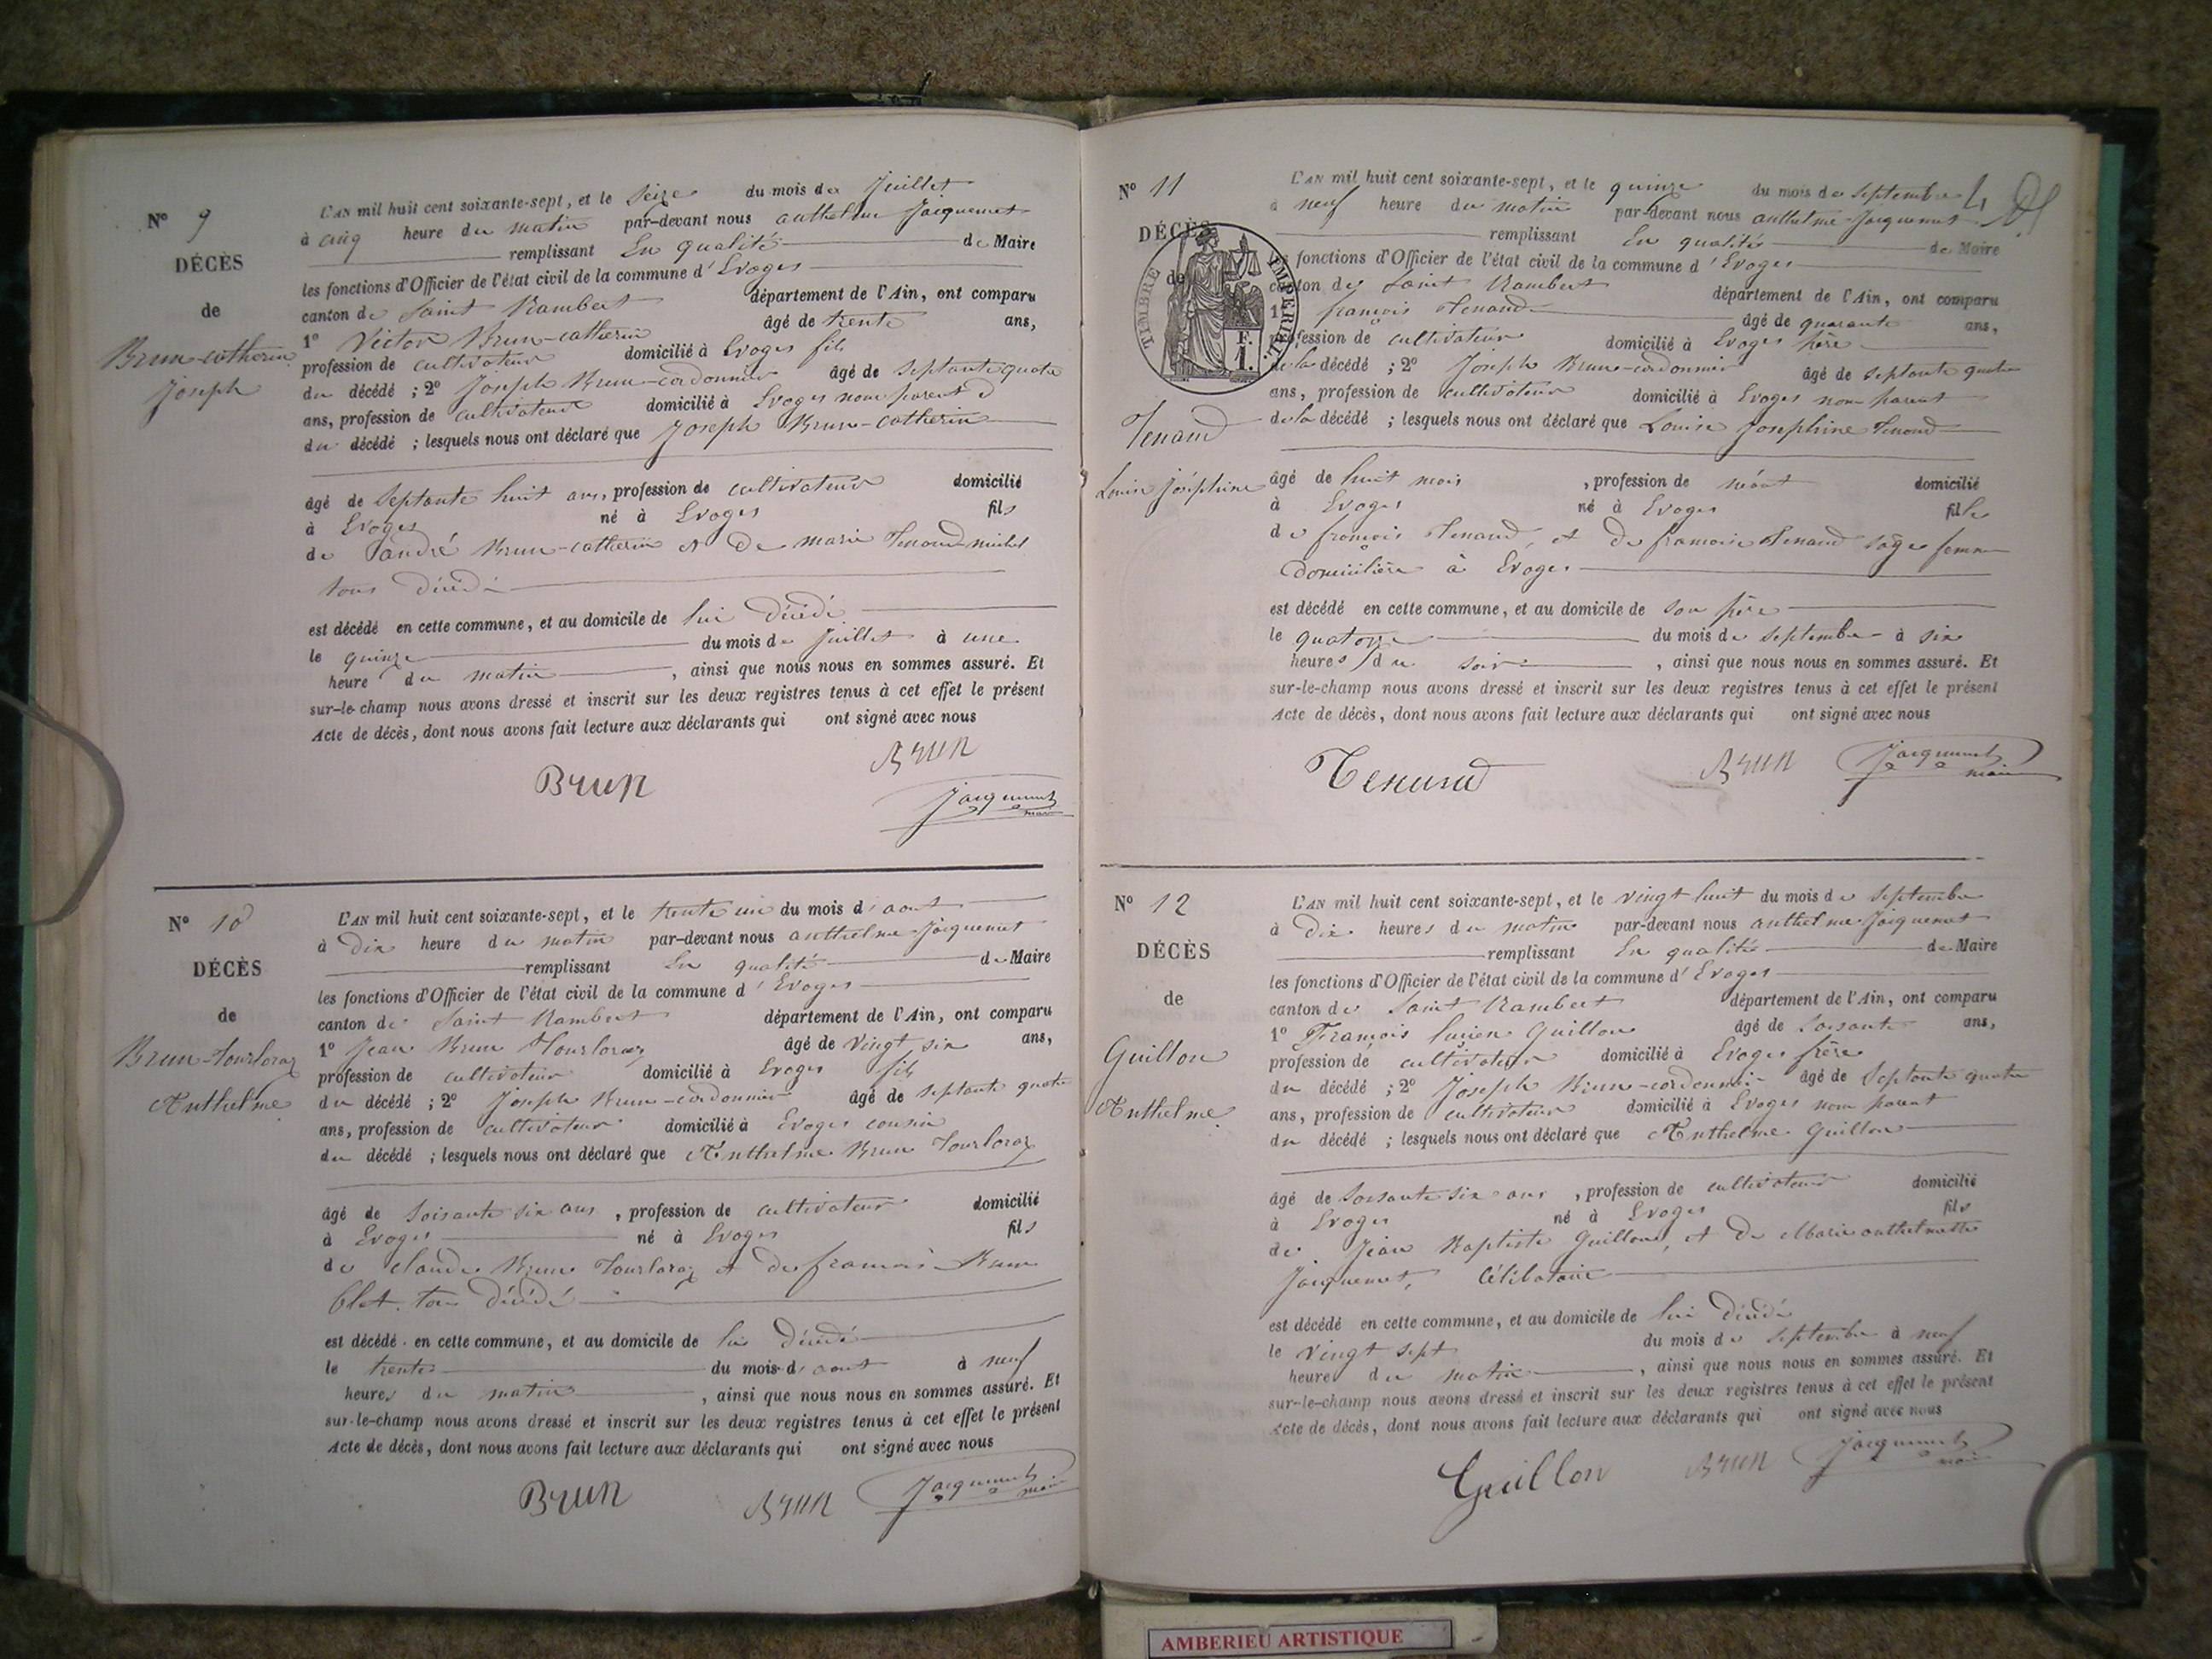 N° 9
DÉCÈS
de
Brun-catherin
Joseph
L'AN mil huit cent soixante-sept, et le Seize du mois de Juillet
à cinq heure du matin par-devant nous anthelme Jacquemet
remplissant En qualité de Maire
les fonctions d'Officier de l'état civil de la commune d'Evoges
canton de Saint Rambert département de l'Ain, ont comparu
1° Victor Brun-catherin âgé de trente ans,
profession de cultivateur domicilié à Evoges fils
du décédé ; 2° Joseph Brun-cordonnier âgé de septante quatre
ans, profession de cultivateur domicilié à Evoges non parent d
du décédé ; lesquels nous ont déclaré que Joseph Brun-catherin
âgé de Septante huit ans, profession de cultivateur domicilié
à Evoges né à Evoges fils
de andré Brun-catherin et de marie Tenand-michel
tous décédé
est décédé en cette commune, et au domicile de lui décédé
le quinze du mois de Juillet à une
heure du matin, ainsi que nous nous en sommes assuré. Et
sur-le-champ nous avons dressé et inscrit sur les deux registres tenus à cet effet le présent
Acte de décès, dont nous avons fait lecture aux déclarants qui ont signé avec nous
Brun
Brun
Jacquemet
maire
N° 10
DÉCÈS
de
Brun-tourloraz
Anthelme
L'AN mil huit cent soixante-sept, et le trente un du mois d'aout
à Dix heure du matin par-devant nous anthelme Jacquemet
remplissant En qualité de Maire
les fonctions d'Officier de l'état civil de la commune d'Evoges
canton de Saint Rambert département de l'Ain, ont comparu
1° Jean Brun tourloraz âgé de vingt six ans,
profession de cultivateur domicilié à Evoges fils
du décédé ; 2° Joseph Brun-cordonnier âgé de septante quatre
ans, profession de cultivateur domicilié à Evoges cousin
du décédé ; lesquels nous ont déclaré que Anthelme Brun Tourloraz
âgé de soisante six ans, profession de cultivateur domicilié
à Evoges né à Evoges fils
de claude Brun Tourloraz et de Brun
Blet tous décédé
est décédé en cette commune, et au domicile de lui décédé
le trente du mois d'aout à neuf
heures du matin, ainsi que nous nous en sommes assuré. Et
sur-le-champ nous avons dressé et inscrit sur les deux registres tenus à cet effet le présent
Acte de décès, dont nous avons fait lecture aux déclarants qui ont signé avec nous
Brun
Brun
Jacquemet
maire
N° 11
DÉCÈS
de
TIMBRE IMPERIAL
1 F.
Tenand
Louise joséphine
L'AN mil huit cent soixante-sept, et le quinze du mois de Septembre
à neuf heure du matin par-devant nous anthelme Jacquemet
remplissant En qualité de Maire
fonctions d'Officier de l'état civil de la commune d'Evoges
canton de Saint Rambert département de l'Ain, ont comparu
1° françois Tenand âgé de quarante ans,
profession de cultivateur domicilié à Evoges père
de la décédé ; 2° Joseph Brun-cordonnier âgé de septante quatre
ans, profession de cultivateur domicilié à Evoges non parent
de la décédé ; lesquels nous ont déclaré que Louise Josephine Tenand
âgé de huit mois, profession de néant domicilié
à Evoges né à Evoges fille
de françois Tenand, et de françoise Tenand sage femme
Domicilière à Evoges
est décédé en cette commune, et au domicile de son père
le quatorze du mois de septembre à six
heures du soir, ainsi que nous nous en sommes assuré. Et
sur-le-champ nous avons dressé et inscrit sur les deux registres tenus à cet effet le présent
Acte de décès, dont nous avons fait lecture aux déclarants qui ont signé avec nous
Tenand
Brun
Jacquemet
maire
N° 12
DÉCÈS
de
Guillon
Anthelme
L'AN mil huit cent soixante-sept, et le vingt huit du mois de Septembre
à Dix heures du matin par-devant nous anthelme Jacquemet
remplissant En qualité de Maire
les fonctions d'Officier de l'état civil de la commune d'Evoges
canton de Saint Rambert département de l'Ain, ont comparu
1° François lucien Guillon âgé de soisante ans,
profession de cultivateur domicilié à Evoges frère
du décédé ; 2° Joseph Brun-cordonnier âgé de Septante quatre
ans, profession de cultivateur domicilié à Evoges non parent
du décédé ; lesquels nous ont déclaré que Anthelme Guillon
âgé de soisante six ans, profession de cultivateur domicilié
à Evoges né à Evoges fils
de Jean Baptiste Guillon, et de Marie anthelmette
Jacquemet, Célibataire
est décédé en cette commune, et au domicile de lui décédé
le vingt sept du mois de septembre à neuf
heures du matin, ainsi que nous nous en sommes assuré. Et
sur-le-champ nous avons dressé et inscrit sur les deux registres tenus à cet effet le présent
Acte de décès, dont nous avons fait lecture aux déclarants qui ont signé avec nous
Guillon
Brun
Jacquemet
maire
AMBERIEU ARTISTIQUE